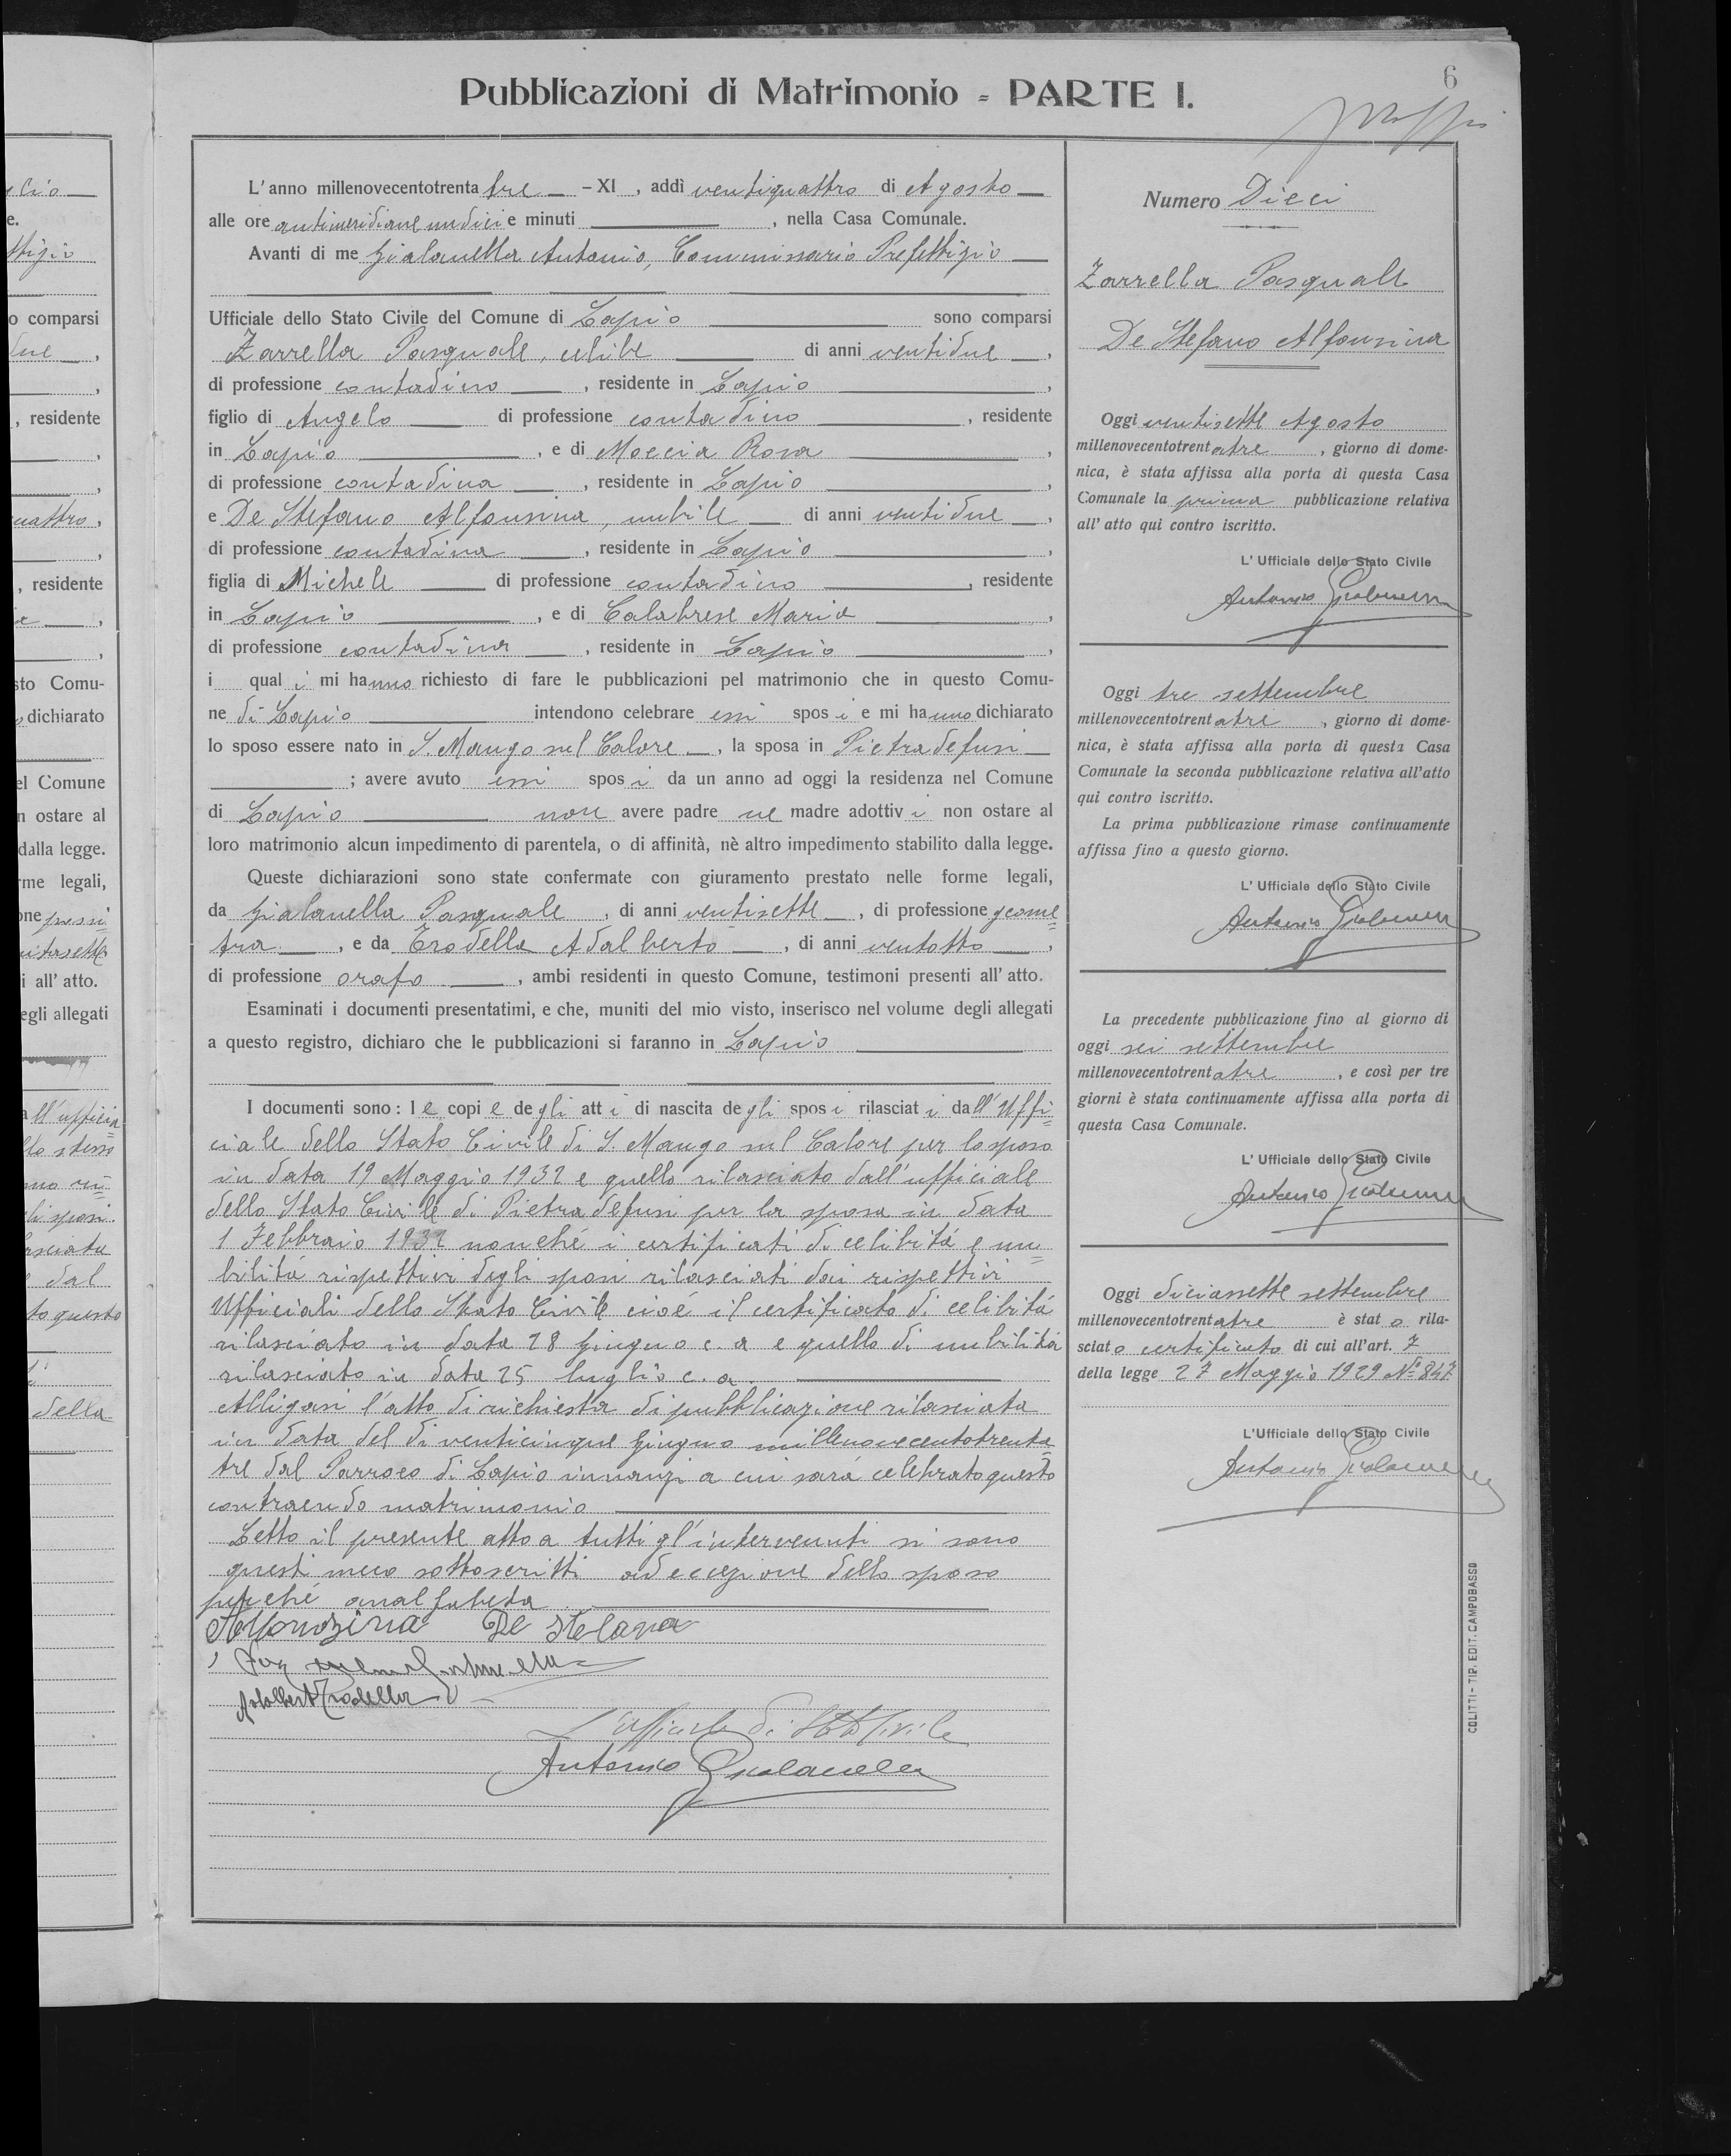 Pubblicazioni di Matrimonio = PARTE I.
6
L'anno millenovecentotrenta tre - XI, addì ventiquattro di Agosto
alle ore antimeridiane undici e minuti , nella Casa Comunale.
Avanti di me Gialanella Antonio, Commissario Prefettizio
Ufficiale dello Stato Civile del Comune di Lapio sono comparsi
Zarrella Pasquale, celibe di anni ventidue ,
di professione contadino , residente in Lapio ,
figlio di Angelo di professione contadino , residente
in Lapio , e di Moccia Rosa ,
di professione contadina , residente in Lapio ,
e De Stefano Alfonsina, nubile di anni ventidue ,
di professione contadina , residente in Lapio ,
figlia di Michele di professione contadino , residente
in Lapio , e di Calabrese Maria ,
di professione contadina , residente in Lapio ,
i quali mi hanno richiesto di fare le pubblicazioni pel matrimonio che in questo Comu-
ne di Lapio intendono celebrare essi sposi e mi hanno dichiarato
lo sposo essere nato in S. Mango sul Calore , la sposa in Pietradefusi
; avere avuto essi sposi da un anno ad oggi la residenza nel Comune
di Lapio non avere padre ne madre adottivi non ostare al
loro matrimonio alcun impedimento di parentela, o di affinità, nè altro impedimento stabilito dalla legge.
Queste dichiarazioni sono state confermate con giuramento prestato nelle forme legali,
da Gialanella Pasquale , di anni ventisette , di professione geome=
tra , e da Trodella Adalberto , di anni ventotto ,
di professione orafo , ambi residenti in questo Comune, testimoni presenti all'atto.
Esaminati i documenti presentatimi, e che, muniti del mio visto, inserisco nel volume degli allegati
a questo registro, dichiaro che le pubblicazioni si faranno in Lapio
I documenti sono: le copie degli atti di nascita degli sposi rilasciati dall'Uffi=
ciale dello Stato Civile di S. Mango sul Calore per lo sposo
in data 19 Maggio 1932 e quello rilasciato dall'ufficiale
dello Stato Civile di Pietradefusi per la sposa in data
1 Febbraio 1932 nonché i certificati di celibità e nu=
bilità rispettivi degli sposi rilasciati dai rispettivi
Ufficiali dello Stato Civile cioé il certificato di celibità
rilasciato in data 28 Giugno c. a e quello di nubilità
rilasciato in data 25 luglio c. a.
Alligasi l'atto di richiesta di pubblicazione rilasciata
in data del dì venticinque Giugno millenovecentotrenta=
tre dal Parroco di Lapio innanzi a cui sarà celebrato questo
contraendo matrimonio
Letto il presente atto a tutti gl'intervenuti si sono
questi meco sottoscritti ad eccezione dello sposo
perché analfabeta
Alfonsina De Stefano
Adalberto Trodella
L'ufficiale di Stato Civile
Antonio Gialanella
Numero Dieci
Zarrella Pasquale
De Stefano Alfonsina
Oggi ventisette Agosto
millenovecentotrentatre , giorno di dome-
nica, è stata affissa alla porta di questa Casa
Comunale la prima pubblicazione relativa
all'atto qui contro iscritto.
L'Ufficiale dello Stato Civile
Antonio Gialanella
Oggi tre settembre
millenovecentotrentatre , giorno di dome-
nica, è stata affissa alla porta di questa Casa
Comunale la seconda pubblicazione relativa all'atto
qui contro iscritto.
La prima pubblicazione rimase continuamente
affissa fino a questo giorno.
L'Ufficiale dello Stato Civile
Antonio Gialanella
La precedente pubblicazione fino al giorno di
oggi sei settembre
millenovecentotrentatre , e così per tre
giorni è stata continuamente affissa alla porta di
questa Casa Comunale.
L'Ufficiale dello Stato Civile
Antonio Gialanella
Oggi diciassette settembre
millenovecentotrentatre è stato rila-
sciato certificato di cui all'art. 7
della legge 27 Maggio 1929 N° 847
L'Ufficiale dello Stato Civile
Antonio Gialanella
COLITTI - TIP. EDIT. CAMPOBASSO